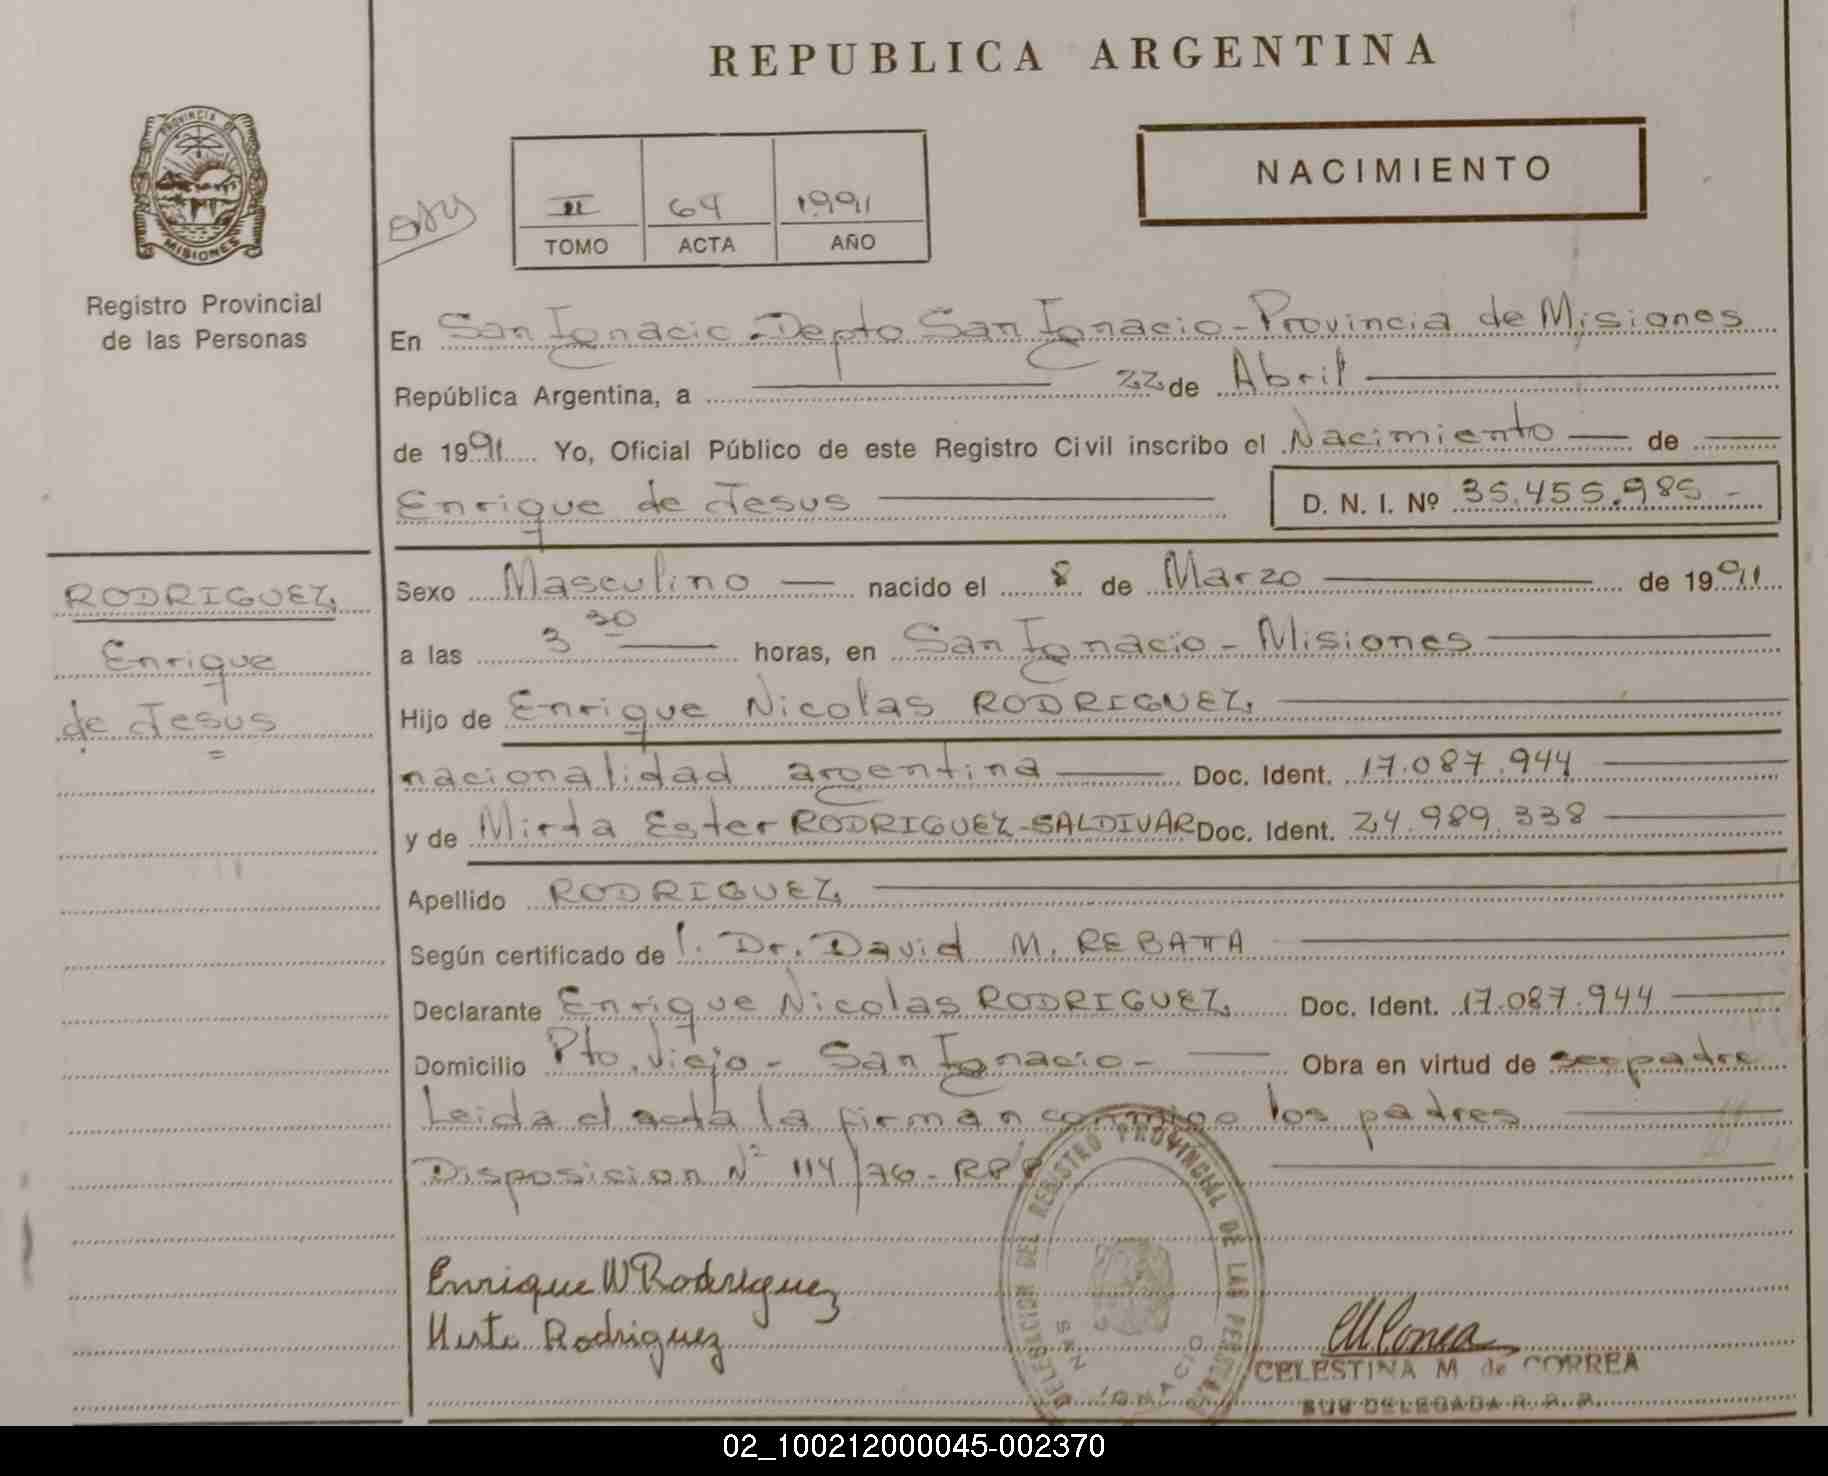 REPUBLICA ARGENTINA
PROVINCIA DE
MISIONES
Registro Provincial
de las Personas
NACIMIENTO
II 69 1991
TOMO ACTA AÑO
En San Ignacio - Depto San Ignacio - Provincia de Misiones
República Argentina, a 22 de Abril
de 1991 Yo, Oficial Público de este Registro Civil inscribo el Nacimiento de
Enrique de Jesus D. N. I. Nº 35.455.985 -
RODRIGUEZ
Enrique
de Jesus
Sexo Masculino nacido el 8 de Marzo de 1991
a las 3 30 horas, en San Ignacio - Misiones
Hijo de Enrique Nicolas RODRIGUEZ
nacionalidad argentina Doc. Ident. 17.087.944
y de Mirta Ester RODRIGUEZ-SALDIVAR Doc. Ident. 24.989.338
Apellido RODRIGUEZ
Según certificado de Dr. David M. REBATTA
Declarante Enrique Nicolas RODRIGUEZ Doc. Ident. 17.087.944
Domicilio Pto. Viejo - San Ignacio - Obra en virtud de ser padre
Leida el acta la firman conmigo los padres
Disposicion Nº 114/76 - RPP
DELEGACION DEL REGISTRO PROVINCIAL DE LAS PERSONAS
SAN IGNACIO
Enrique N Rodriguez
Mirta Rodriguez
CELESTINA M. de CORREA
SUB DELEGADA R. P. P.
02_100212000045-002370